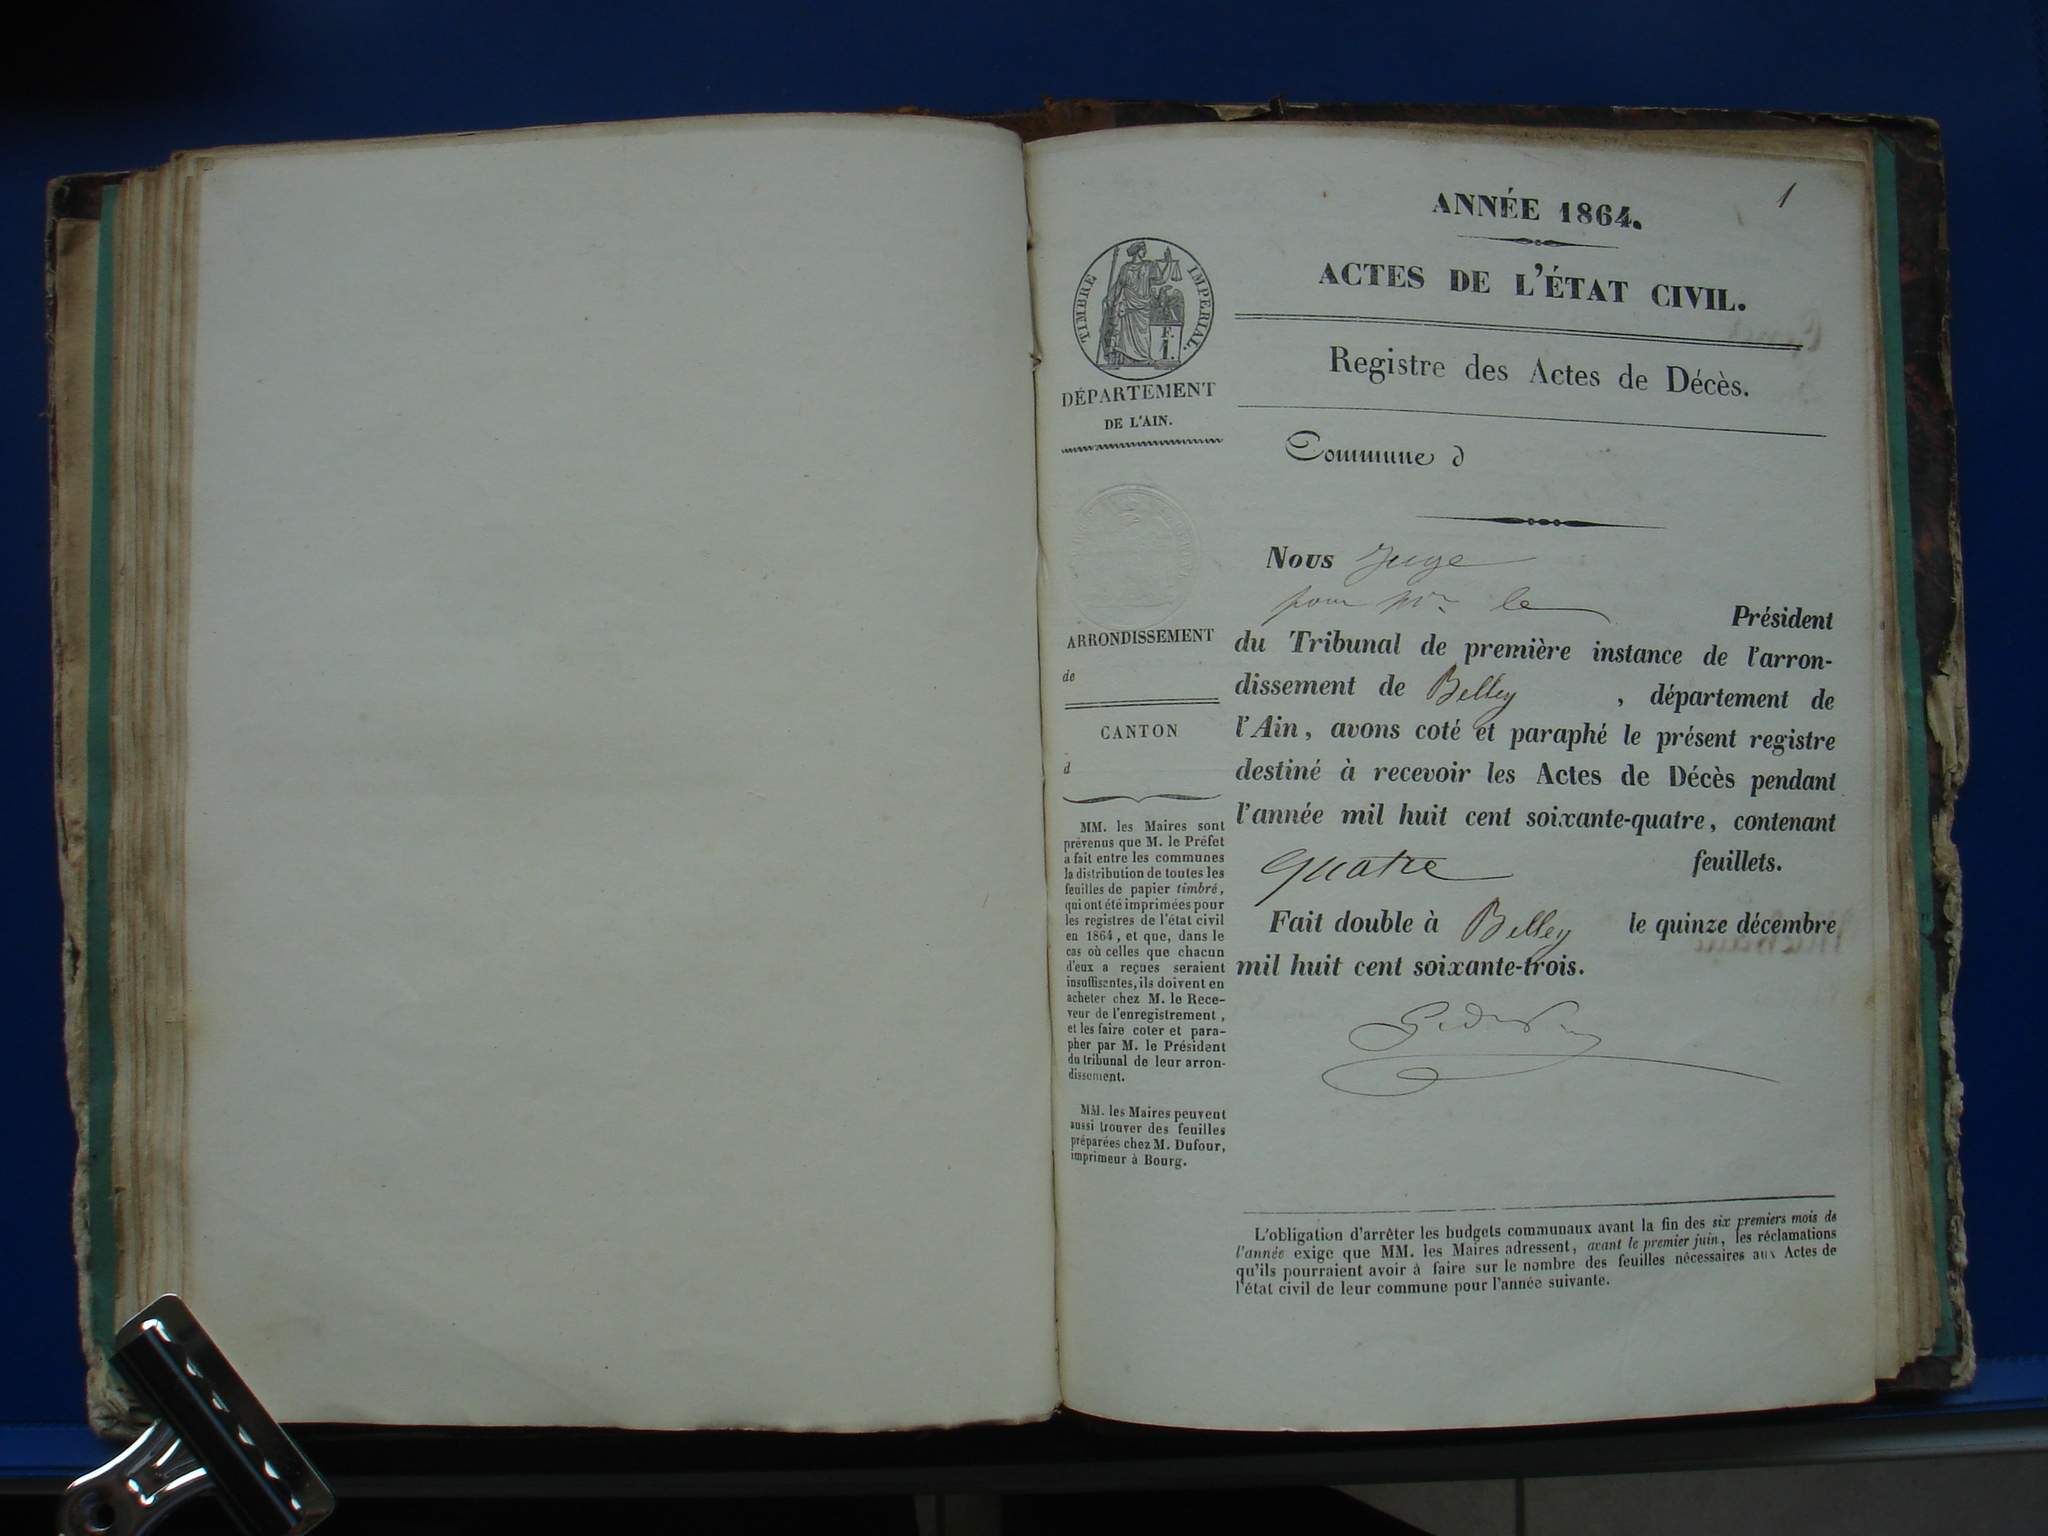 1
ANNÉE 1864.
ACTES DE L'ÉTAT CIVIL.
Registre des Actes de Décès.
Commune d
TIMBRE IMPERIAL.
F.
1.
DÉPARTEMENT
DE L'AIN.
ARRONDISSEMENT
de
CANTON
d
MM. les Maires sont
prévenus que M. le Préfet
a fait entre les communes
la distribution de toutes les
feuilles de papier timbré,
qui ont été imprimées pour
les registres de l'état civil
en 1864, et que, dans le
cas où celles que chacun
d'eux a reçues seraient
insuffisantes, ils doivent en
acheter chez M. le Rece-
veur de l'enregistrement,
et les faire coter et para-
pher par M. le Président
du tribunal de leur arron-
dissement.
MM. les Maires peuvent
aussi trouver des feuilles
préparées chez M. Dufour,
imprimeur à Bourg.
Nous Juge
pour Mr le Président
du Tribunal de première instance de l'arron-
dissement de Belley , département de
l'Ain, avons coté et paraphé le présent registre
destiné à recevoir les Actes de Décès pendant
l'année mil huit cent soixante-quatre, contenant
quatre feuillets.
Fait double à Belley le quinze décembre
mil huit cent soixante-trois.
L'obligation d'arrêter les budgets communaux avant la fin des six premiers mois de
l'année exige que MM. les Maires adressent, avant le premier juin, les réclamations
qu'ils pourraient avoir à faire sur le nombre des feuilles nécessaires aux Actes de
l'état civil de leur commune pour l'année suivante.